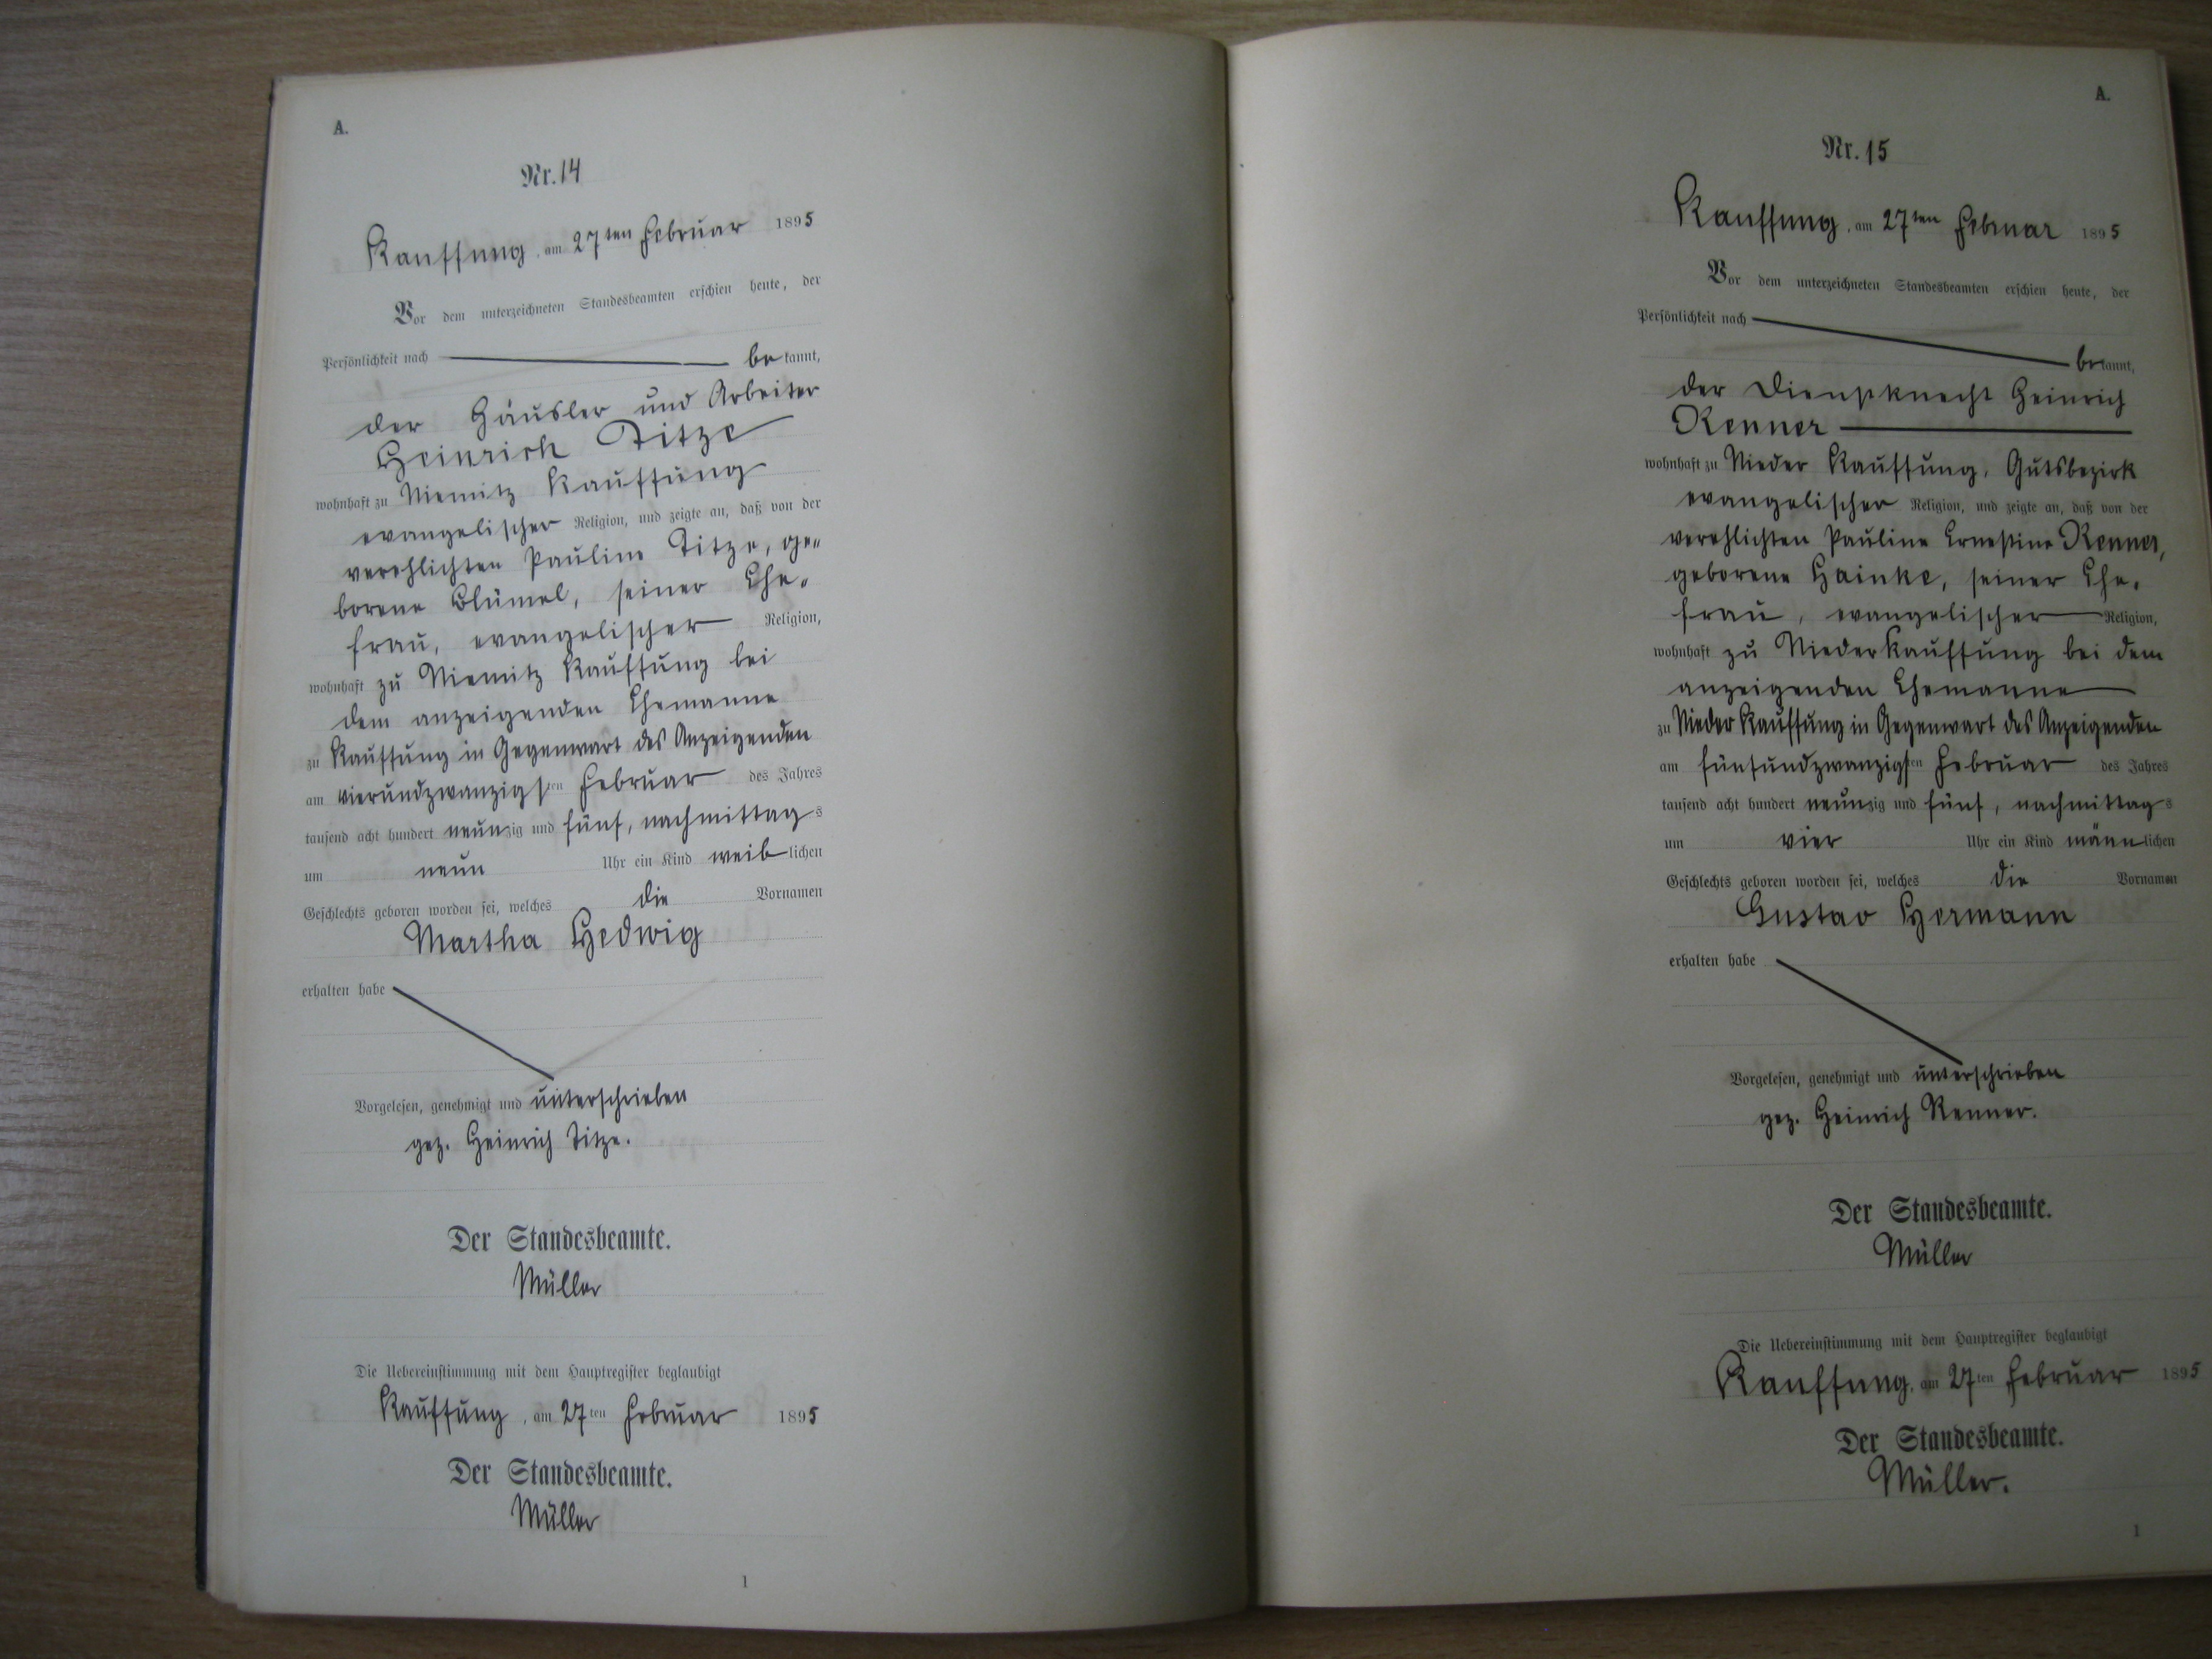 A.
Nr. 14
Kauffung, am 27ten Februar 1895
Vor dem unterzeichneten Standesbeamten erschien heute, der
Persönlichkeit nach bekannt,
der Häusler und Arbeiter
Heinrich Titze
wohnhaft zu Niemitz Kauffung
evangelischer Religion, und zeigte an, daß von der
verehlichten Pauline Titze, ge=
borene Blümel, seiner Ehe=
frau, evangelischer Religion,
wohnhaft zu Niemitz Kauffung bei
dem anzeigenden Ehemanne
zu Kauffung in Gegenwart des Anzeigenden
am vierundzwanzigsten Februar des Jahres
tausend acht hundert neunzig und fünf, nachmittags
um neun Uhr ein Kind weiblichen
Geschlechts geboren worden sei, welches die Vornamen
Martha Hedwig
erhalten habe
Vorgelesen, genehmigt und unterschrieben
gez. Heinrich Titze.
Der Standesbeamte.
Müller
Die Uebereinstimmung mit dem Hauptregister beglaubigt
Kauffung, am 27ten Februar 1895
Der Standesbeamte.
Müller
1
A.
Nr. 15
Kauffung, am 27ten Februar 1895
Vor dem unterzeichneten Standesbeamten erschien heute, der
Persönlichkeit nach
bekannt,
der Dienstknecht Heinrich
Renner
wohnhaft zu Nieder Kauffung, Gutsbezirk
evangelischer Religion, und zeigte an, daß von der
verehlichten Pauline Ernestine Renner,
geborene Hainke, seiner Ehe=
frau, evangelischer Religion,
wohnhaft zu Niederkauffung bei dem
anzeigenden Ehemanne
zu Nieder Kauffung in Gegenwart des Anzeigenden
am fünfundzwanzigsten Februar des Jahres
tausend acht hundert neunzig und fünf, nachmittags
um vier Uhr ein Kind männlichen
Geschlechts geboren worden sei, welches die Vornamen
Gustav Hermann
erhalten habe
Vorgelesen, genehmigt und unterschrieben
gez. Heinrich Renner.
Der Standesbeamte.
Müller
Die Uebereinstimmung mit dem Hauptregister beglaubigt
Kauffung, am 27ten Februar 1895
Der Standesbeamte.
Müller.
1